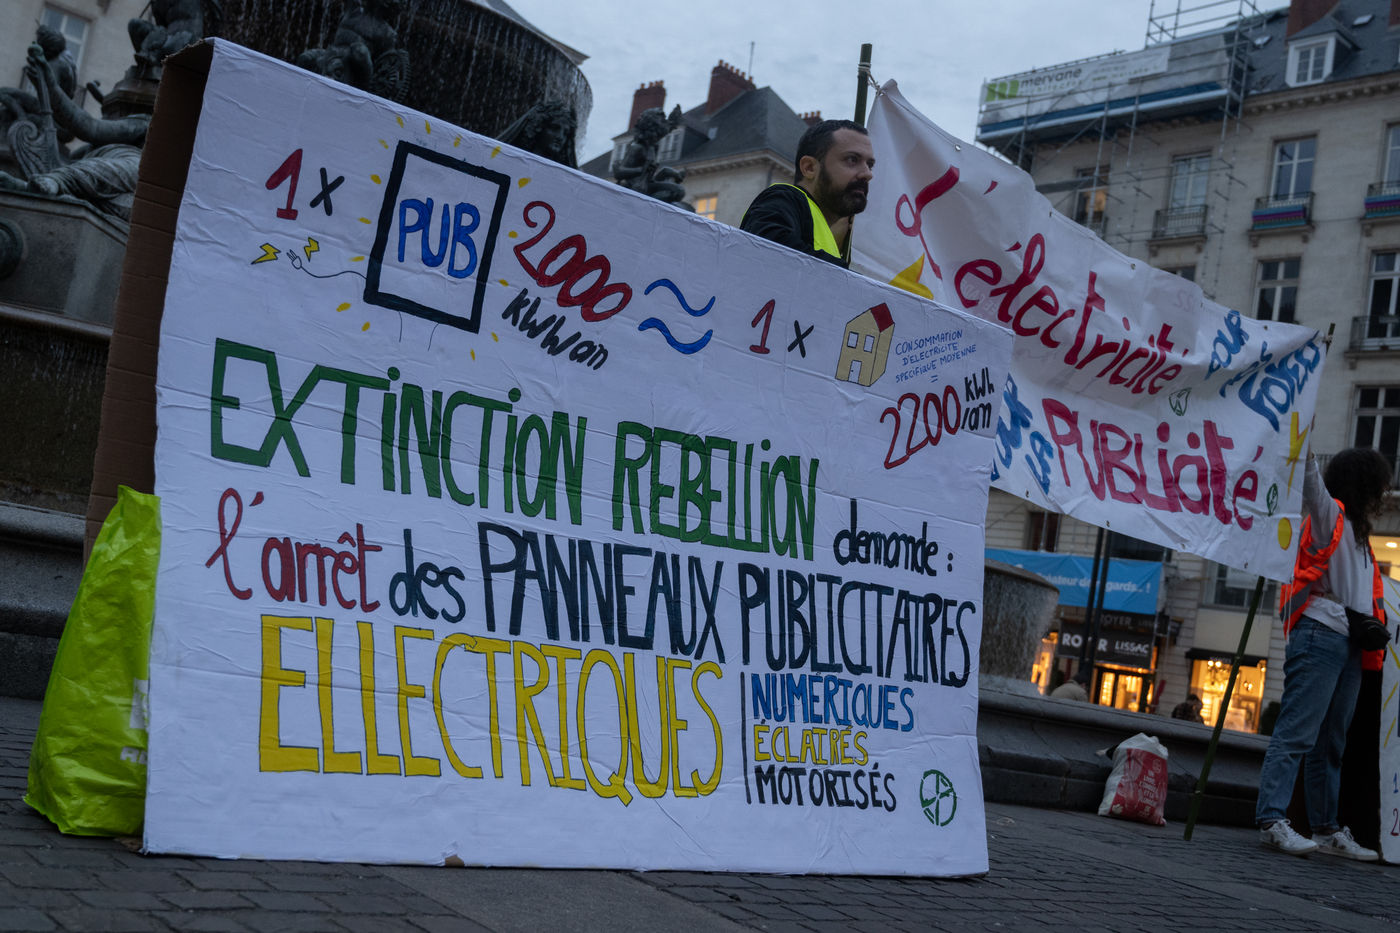 1 x PUB 2000 kWh/an ≈ 1 x
CONSOMMATION
D'ÉLECTRICITÉ
SPÉCIFIQUE MOYENNE
=
2200 kWh/an
EXTINCTION REBELLION demande :
l'arrêt des PANNEAUX PUBLICITAIRES
ELLECTRIQUES
NUMÉRIQUES
ÉCLAIRÉS
MOTORISÉS
L'électricité
POUR nos FOYERS
PAS POUR LA
PUBLICITÉ
mervane
ROYER
LISSAC